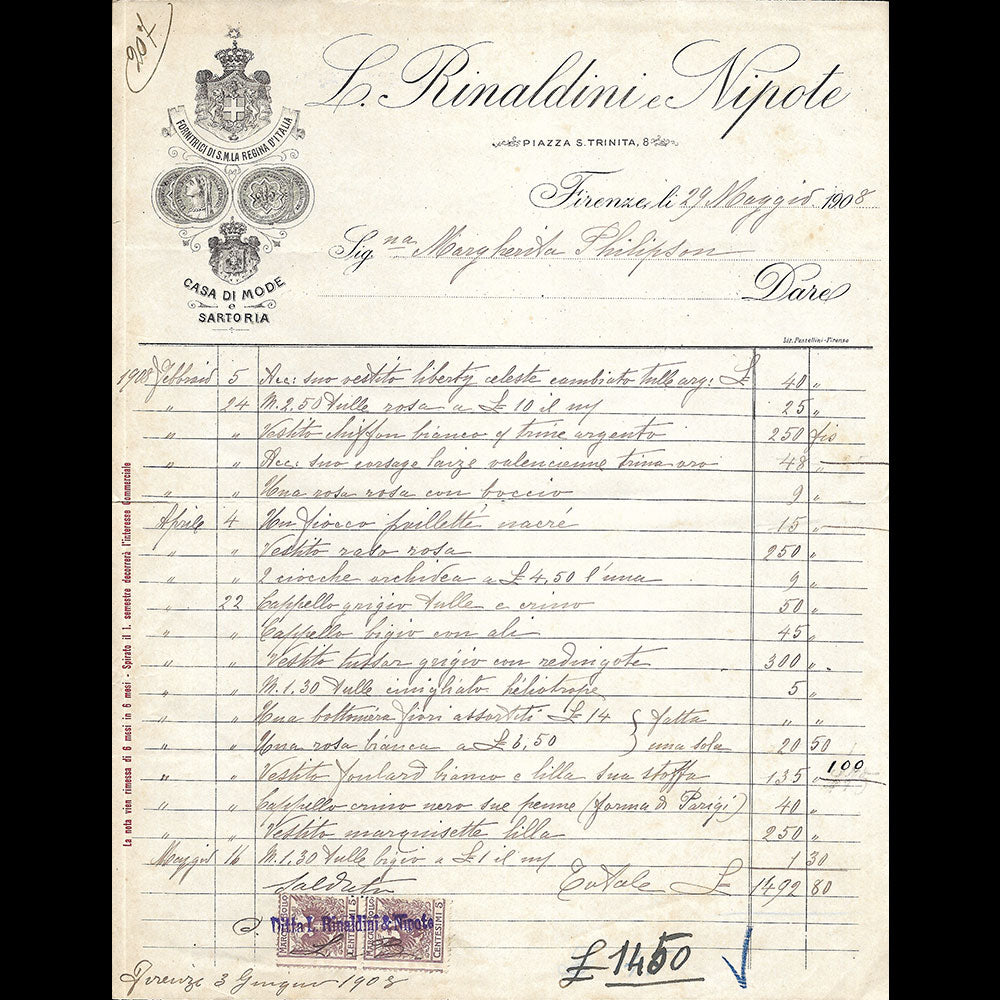 207
L. Rinaldini e Nipote
PIAZZA S. TRINITA, 8
FORNITRICI DI S.M. LA REGINA D'ITALIA
CASA DI MODE
e
SARTORIA
Firenze, li 29 Maggio 1908
Sig.na Margherita Philipson
Dare
Lit. Pastellini-Firenze
1908 Febbraio 5 Acc: suo vestito liberty celeste cambiato tulle arg: £ 40 "
" 24 M. 2,50 tulle rosa a £ 10 il m/ 25 "
" " Vestito chiffon bianco e trine argento 250
" " Acc: suo corsage laize valencienne trina oro 48 "
" " Una rosa rosa con boccio 9 "
Aprile 4 Un fiocco pailletté nacré 15 "
" " Vestito raso rosa 250 "
" " 2 ciocche orchidea a £ 4,50 l'una 9 "
" 22 Cappello grigio tulle e crino 50 "
" " Cappello bigio con ali 45 "
" " Vestito tussar grigio con redingote 300 "
" " M. 1.30 tulle cinigliato héliotrope 5 "
" " Una bottoniera fiori assortiti £ 14 } fatta " "
" " Una rosa bianca a £ 6,50 } una sola 20 50
" " Vestito foulard bianco e lilla sua stoffa 135 " 100
" " Cappello crino nero sue penne (forma di Parigi) 40 "
" " Vestito marquisette lilla 250 "
Maggio 16 M. 1,30 tulle bigio a £ 1 il m/ 1 30
Saldato Totale £ 1492 80
MARCA DA BOLLO CENTESIMI 5
MARCA DA BOLLO CENTESIMI 5
Ditta L. Rinaldini & Nipote
£ 1450
Firenze 3 Giugno 1908
La nota vien rimessa di 6 mesi in 6 mesi - Spirato il 1. semestre decorrerà l'interesse Commerciale